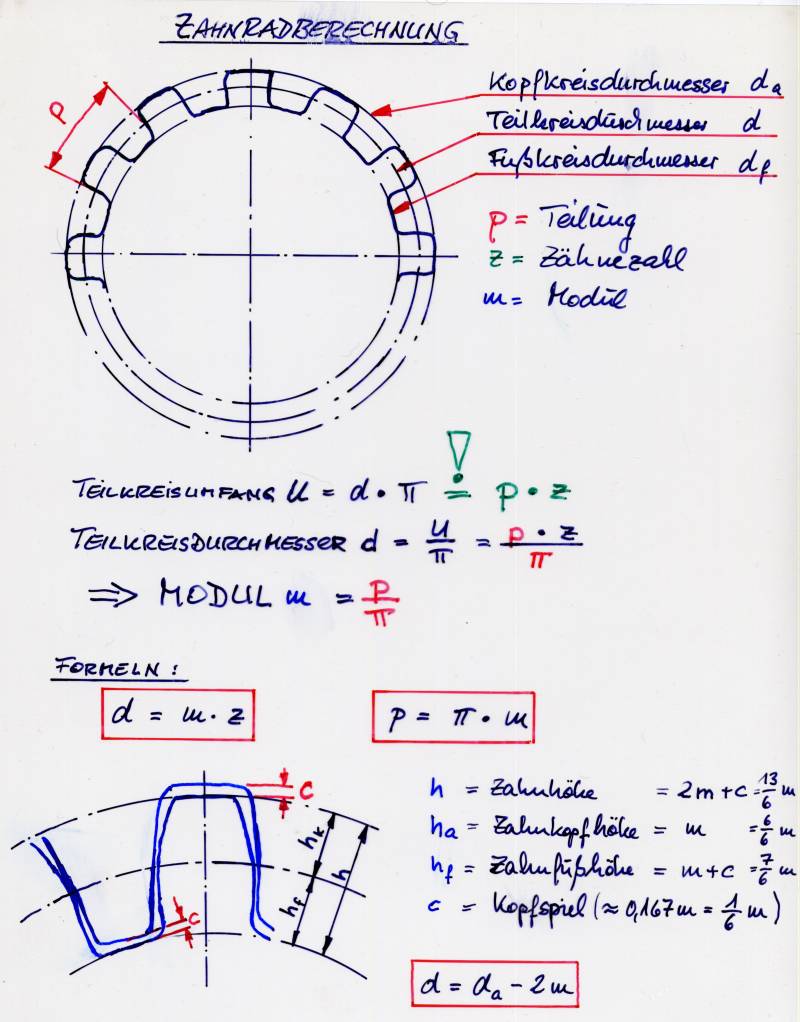 ZAHNRADBERECHNUNG
Kopfkreisdurchmesser da
Teilkreisdurchmesser d
Fußkreisdurchmesser df
p
p = Teilung
z = Zähnezahl
m = Modul
TEILKREISUMFANG U = d · π != p · z
TEILKREISDURCHMESSER d = U/π = p · z/π
⇒ MODUL m = p/π
FORMELN:
d = m · z
p = π · m
c
h = Zahnhöhe = 2m + c = 13/6 m
ha = Zahnkopfhöhe = m = 6/6 m
hf = Zahnfußhöhe = m + c = 7/6 m
c = Kopfspiel (≈ 0,167m = 1/6 m)
hk
h
hf
c
d = da - 2m